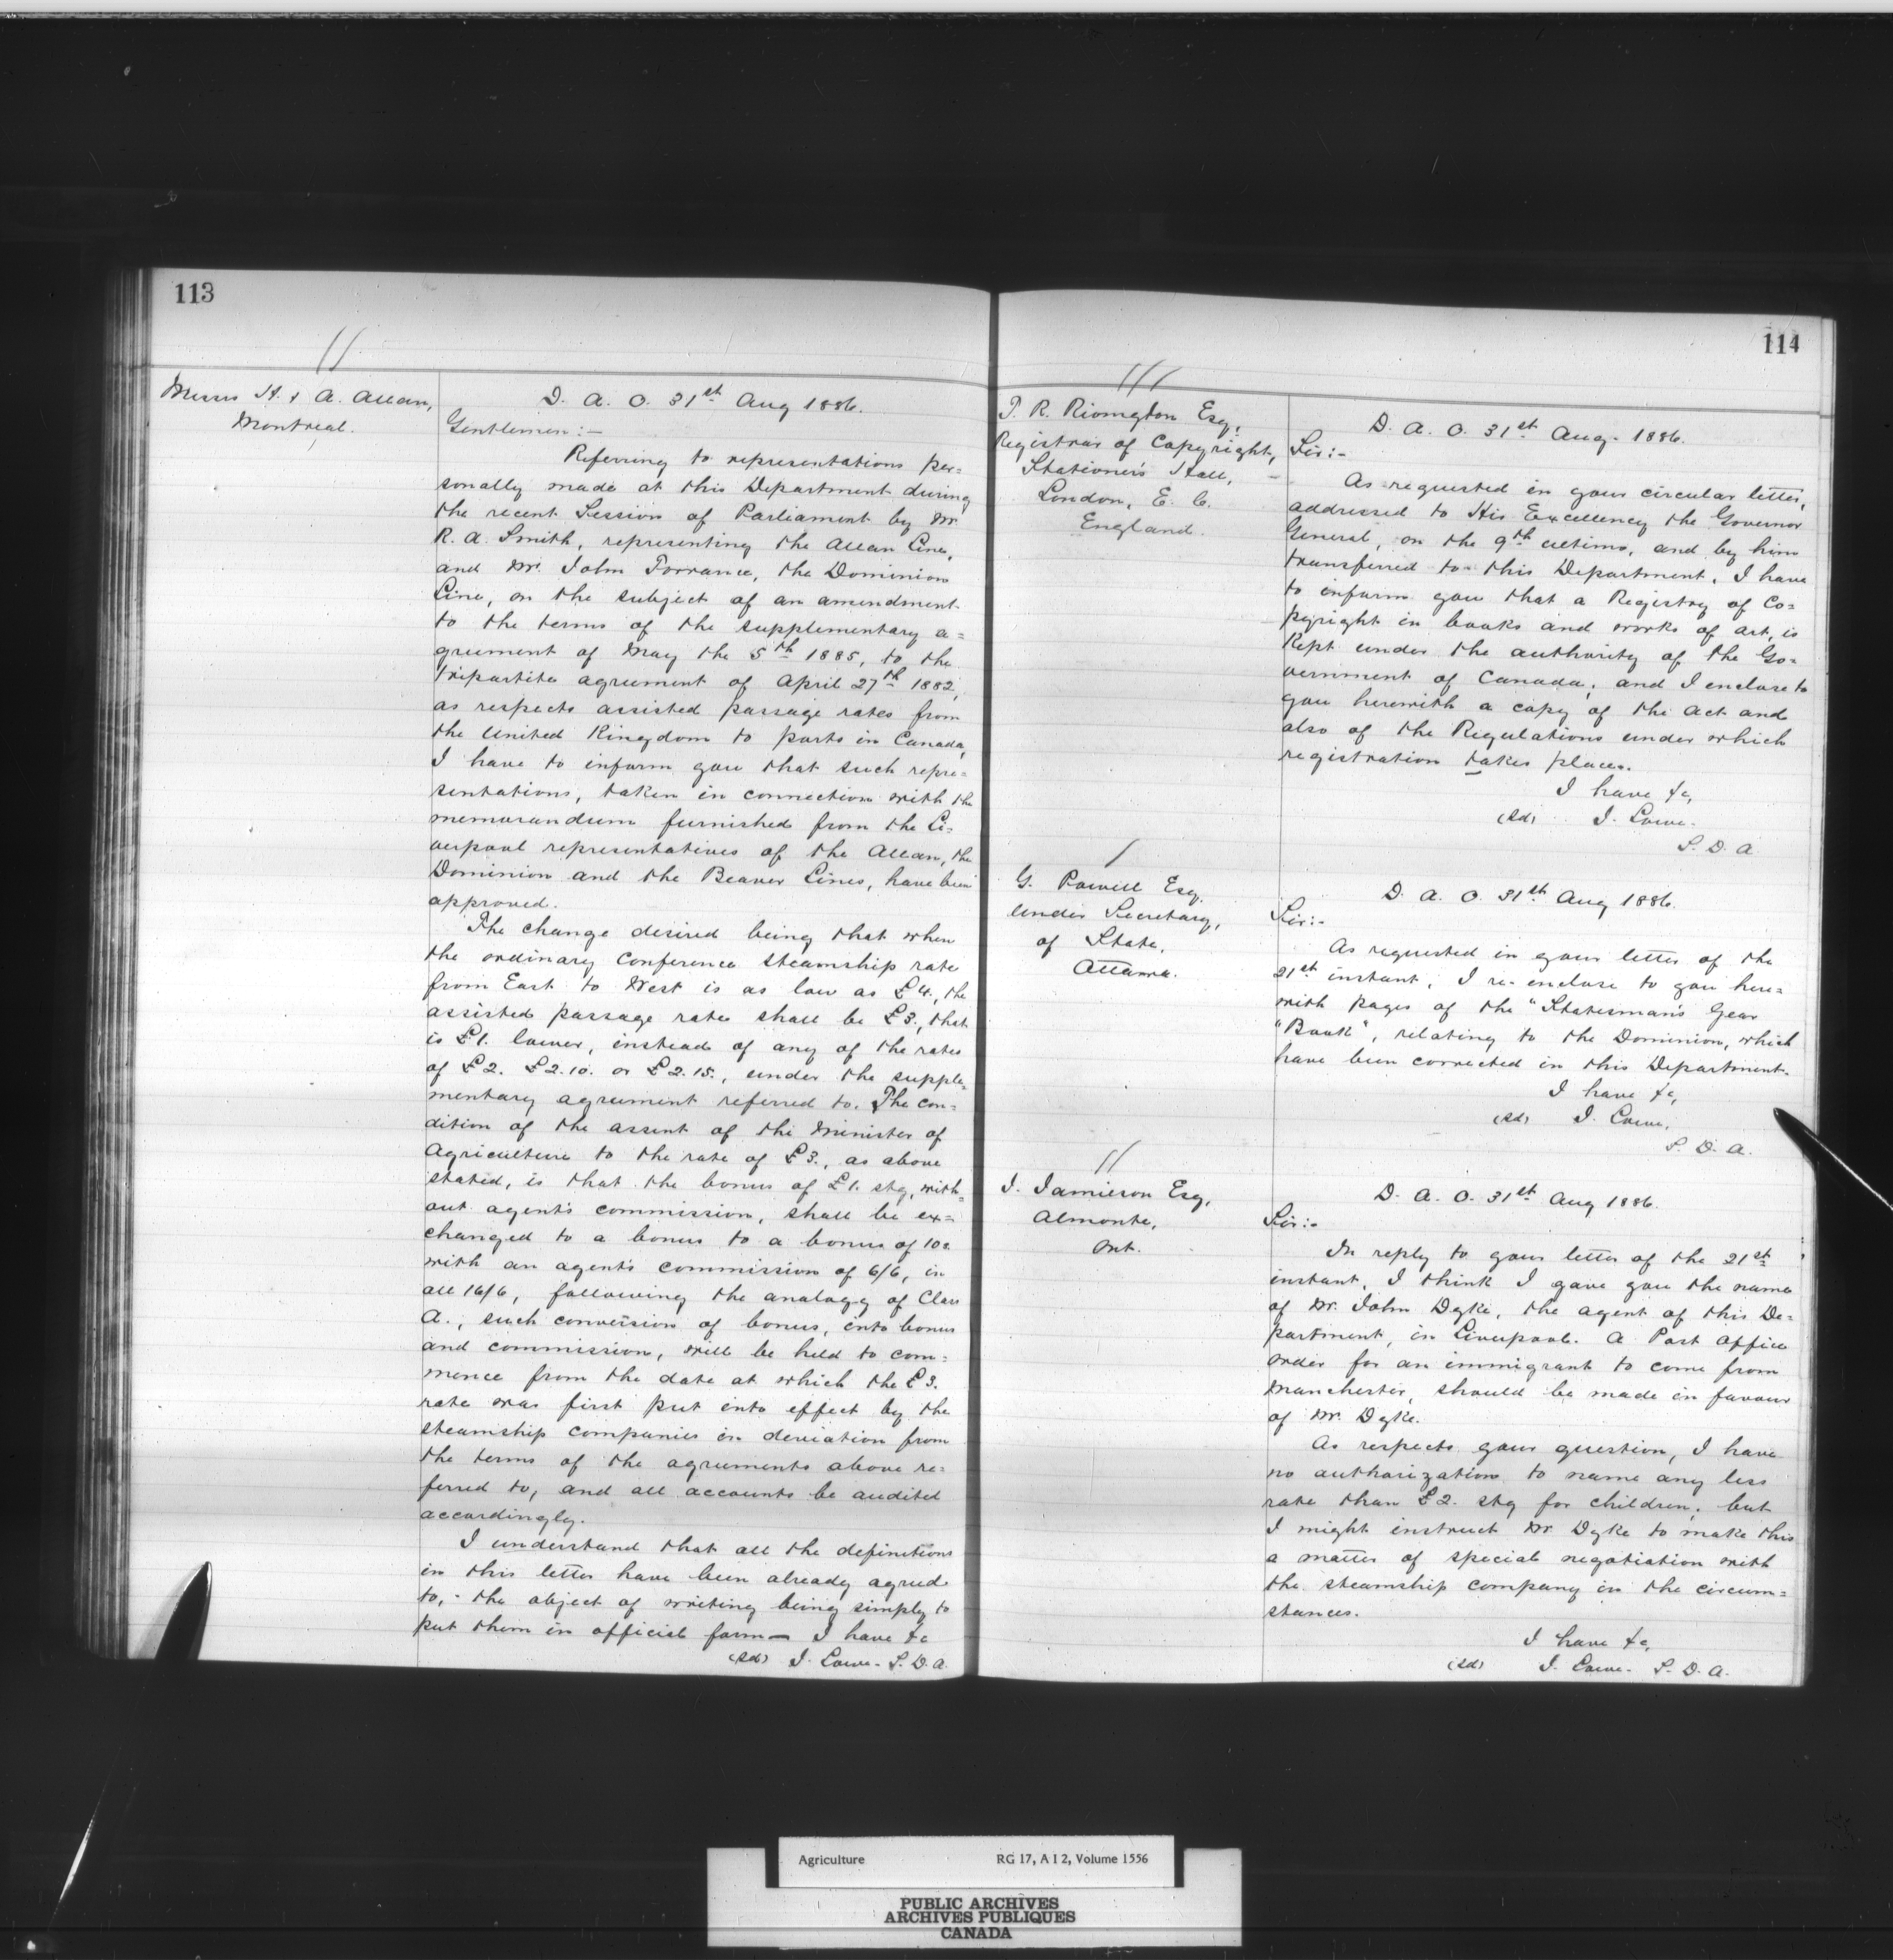 113
Messrs H. & A. Allan,
Montreal.
D. A. O. 31st Aug 1886.
Gentlemen:—
Referring to representations per=
sonally made at this Department during
the recent Session of Parliament by Mr.
R. A. Smith, representing the Allan Line,
and Mr. John Torrance, the Dominion
Line, on the subject of an amendment
to the terms of the supplementary a=
greement of May the 5th 1885, to the
tripartite agreement of April 27th 1882,
as respects assisted passage rates from
the United Kingdom to ports in Canada,
I have to inform you that such repre=
sentations, taken in connection with the
memorandum furnished from the Li=
verpool representatives of the Allan, the
Dominion and the Beaver Lines, have been
approved.
The change desired being that when
the ordinary conference steamship rate
from East to West is as low as £4., the
assisted passage rate shall be £3., that
is £1. lower, instead of any of the rates
of £2. £2.10. or £2.15., under the supple=
mentary agreement referred to. The con=
dition of the assent of the Minister of
Agriculture to the rate of £3., as above
stated, is that the bonus of £1. stg, with=
out agent's commission, shall be ex=
changed to a bonus to a bonus of 10s.
with an agent's commission of 6/6, in
all 16/6, following the analogy of Class
A., such conversion of bonus, into bonus
and commission, will be held to com=
mence from the date at which the £3.
rate was first put into effect by the
steamship companies in deviation from
the terms of the agreements above re=
ferred to, and all accounts be audited
accordingly.
I understand that all the definitions
in this letter have been already agreed
to,- the object of writing being simply to
put them in official form— I have &c
(sd) J. Lowe. S. D. A.
114
T. R. Rivington Esq,
Registrar of Copyright,
Stationer's Hall,
London, E. C.
England.
D. A. O. 31st Aug. 1886.
Sir:-
As requested in your circular letter,
addressed to His Excellency the Governor
General, on the 9th ultimo, and by him
transferred to this Department, I have
to inform you that a Registry of Co=
pyright in books and works of art, is
kept under the authority of the Go=
vernment of Canada, and I enclose to
you herewith a copy of the Act and
also of the Regulations under which
registration takes place.
I have &c,
(sd) J. Lowe.
S. D. A.
G. Powell Esq.
Under Secretary,
of State,
Ottawa.
D. A. O. 31st Aug 1886.
Sir:-
As requested in your letter of the
21st instant, I re-enclose to you here=
with pages of the "Statesman's Year
"Book", relating to the Dominion, which
have been corrected in this Department.
I have &c,
(sd) J. Lowe,
S. D. A.
J. Jamieson Esq,
Almonte,
Ont.
D. A. O. 31st Aug 1886.
Sir:-
In reply to your letter of the 21st
instant, I think I gave you the name
of Mr. John Dyke, the agent of this De=
partment, in Liverpool. A Post office
order for an immigrant to come from
Manchester, should be made in favour
of Mr. Dyke.
As respects your question, I have
no authorization to name any less
rate than £2. stg for children, but
I might instruct Mr. Dyke to make this
a matter of special negotiation with
the steamship company in the circum=
stances.
I have &c,
(sd) J. Lowe. S. D. A.
Agriculture RG 17, A I 2, Volume 1556
PUBLIC ARCHIVES
ARCHIVES PUBLIQUES
CANADA